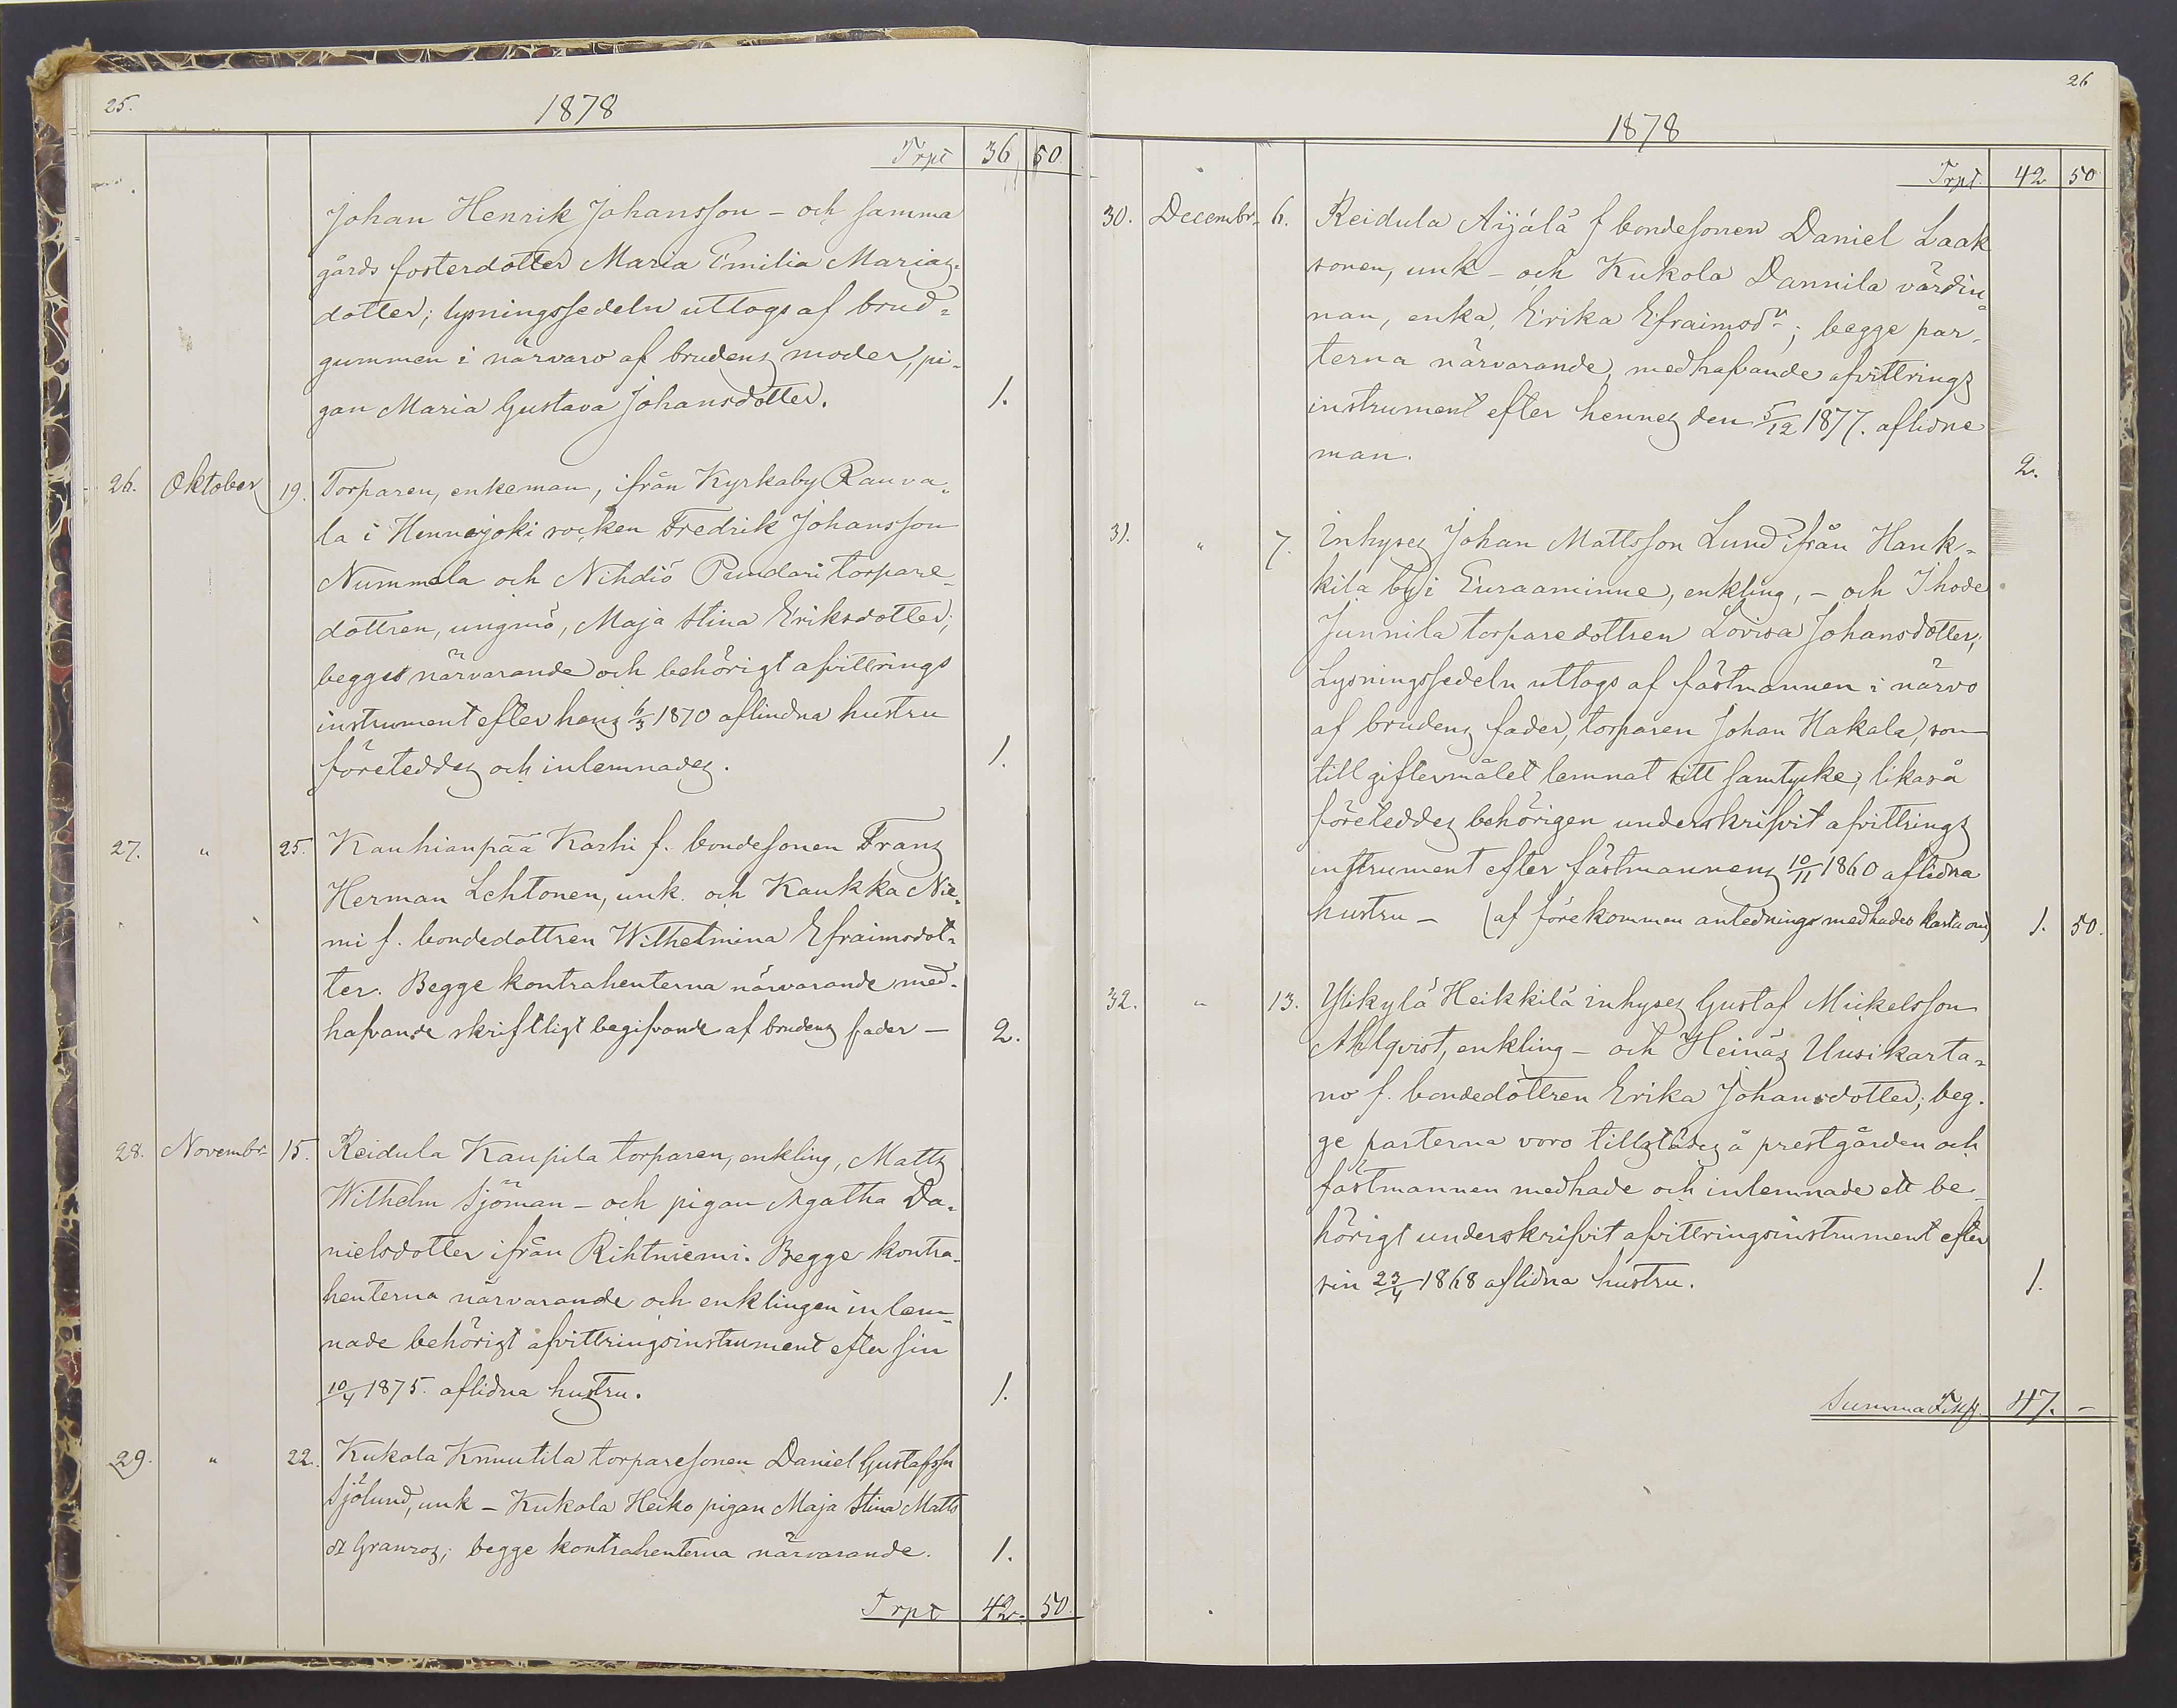 25.
1878
Trpt 36 50
Johan Henrik Johansson - och samma
gårds fosterdotter Maria Emilia Marias-
dotter; lysningssedeln uttogs af brud-
gummen i närvaro af brudens moder, pi-
gan Maria Gustava Johansdotter. 1.
26. Oktober 19. Torparen, enkeman, ifrån Kyrkaby Rauva-
la i Hennejoki socken Fredrik Johansson
Nummela och Nihdiö Pundari torpare-
dottren, ungmö, Maja Stina Eriksdotter;
begges närvarande och behörigt afvittrings
instrument efter hans 6/3 1870 aflindna hustru
företeddes och inlemnades. 1.
27. " 25. Kauhianpää Karhi f. bondesonen Frans
Herman Lehtonen, unk. och Kaukka Nie-
mi f. bondedottren Wilhelmina Efraimsdot-
ter. Begge kontrahenterna närvarande med-
hafvande skriftligt begifvande af brudens fader - 2.
28. Novembr 15. Reidula Kaupila torparen, enkling, Matts
Wilhelm Sjöman - och pigan Agatha Da-
nielsdotter ifrån Rihtniemi. Begge kontra-
henterna närvarande och enklingen inlem-
nade behörigt afvittringsinstrument efter sin
10/4 1875. aflidna hustru. 1.
29. " 22. Kukola Knuutila torparesonen Daniel Gustafsson
Sjölund, unk - Kukola Heiko pigan Maja Stina Matts
dr Granros; begge kontrahenterna närvarande. 1.
Trpt 42. 50.
26
1878
Trpt. 42 50
30. Decembr. 6. Reidula Äijälä f bondesonen Daniel Laak
sonen, unk - och Kukola Dannila värdin-
nan, enka, Erika Efraimsdr; begge par-
terna närvarande, medhafvande afvittrings
instrument efter hennes den 5/12 1877. aflidne
man. 2.
31. " 7. Inhyses Johan Mattsson Lund ifrån Hank-
kila by i Euraaminne, enkling, - och Ihode
Junnila torparedottren Lovisa Johansdotter;
Lysningssedeln uttogs af fästmannen i närvo
af brudens fader, torparen Johan Hakala, som
till giftermålet lemnat sitt samtycke; likaså
företeddes behörigen underskrifvit afvittrings
instrument efter fästmannens 10/11 1860 aflidna
hustru - (af förekommen anlednings medhades karta ona) 1. 50.
32. " 13. Ylikylä Heikkilä inhyses Gustaf Mickelsson
Ahlqvist, enkling - och Heinäs Uusikarta-
no f. bondedottren Erika Johansdotter; beg-
ge parterna voro tillstädes å prestgården och
fästmannen medhade och inlemnade ett be-
hörigt underskrifvit afvittringsinstrument efter
sin 23/4 1868 aflidna hustru. 1.
Summa Fmk 47. -